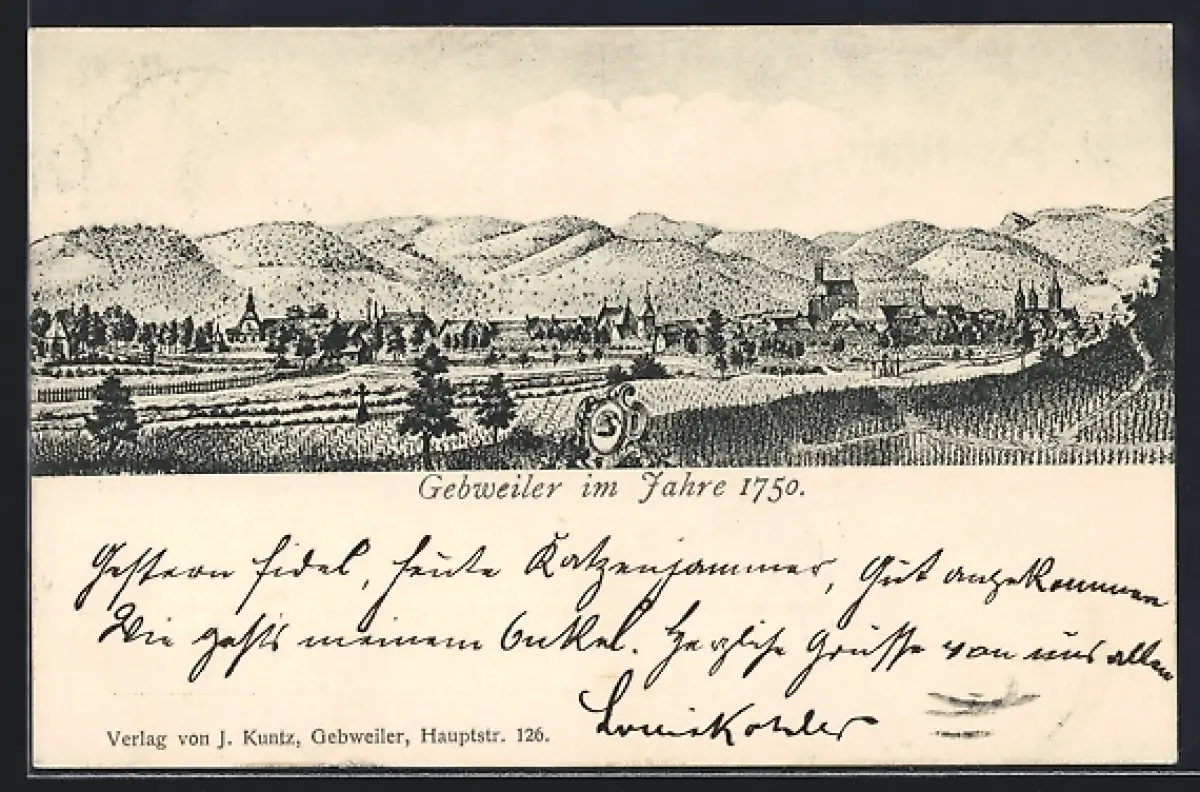 Gebweiler im Jahre 1750.
Gestern fidel, heute Katzenjammer, Gut angekommen
Wie gehts meinem Onkel. Herzliche Grüsse von uns allen
Louis
Verlag von J. Kuntz, Gebweiler, Hauptstr. 126.